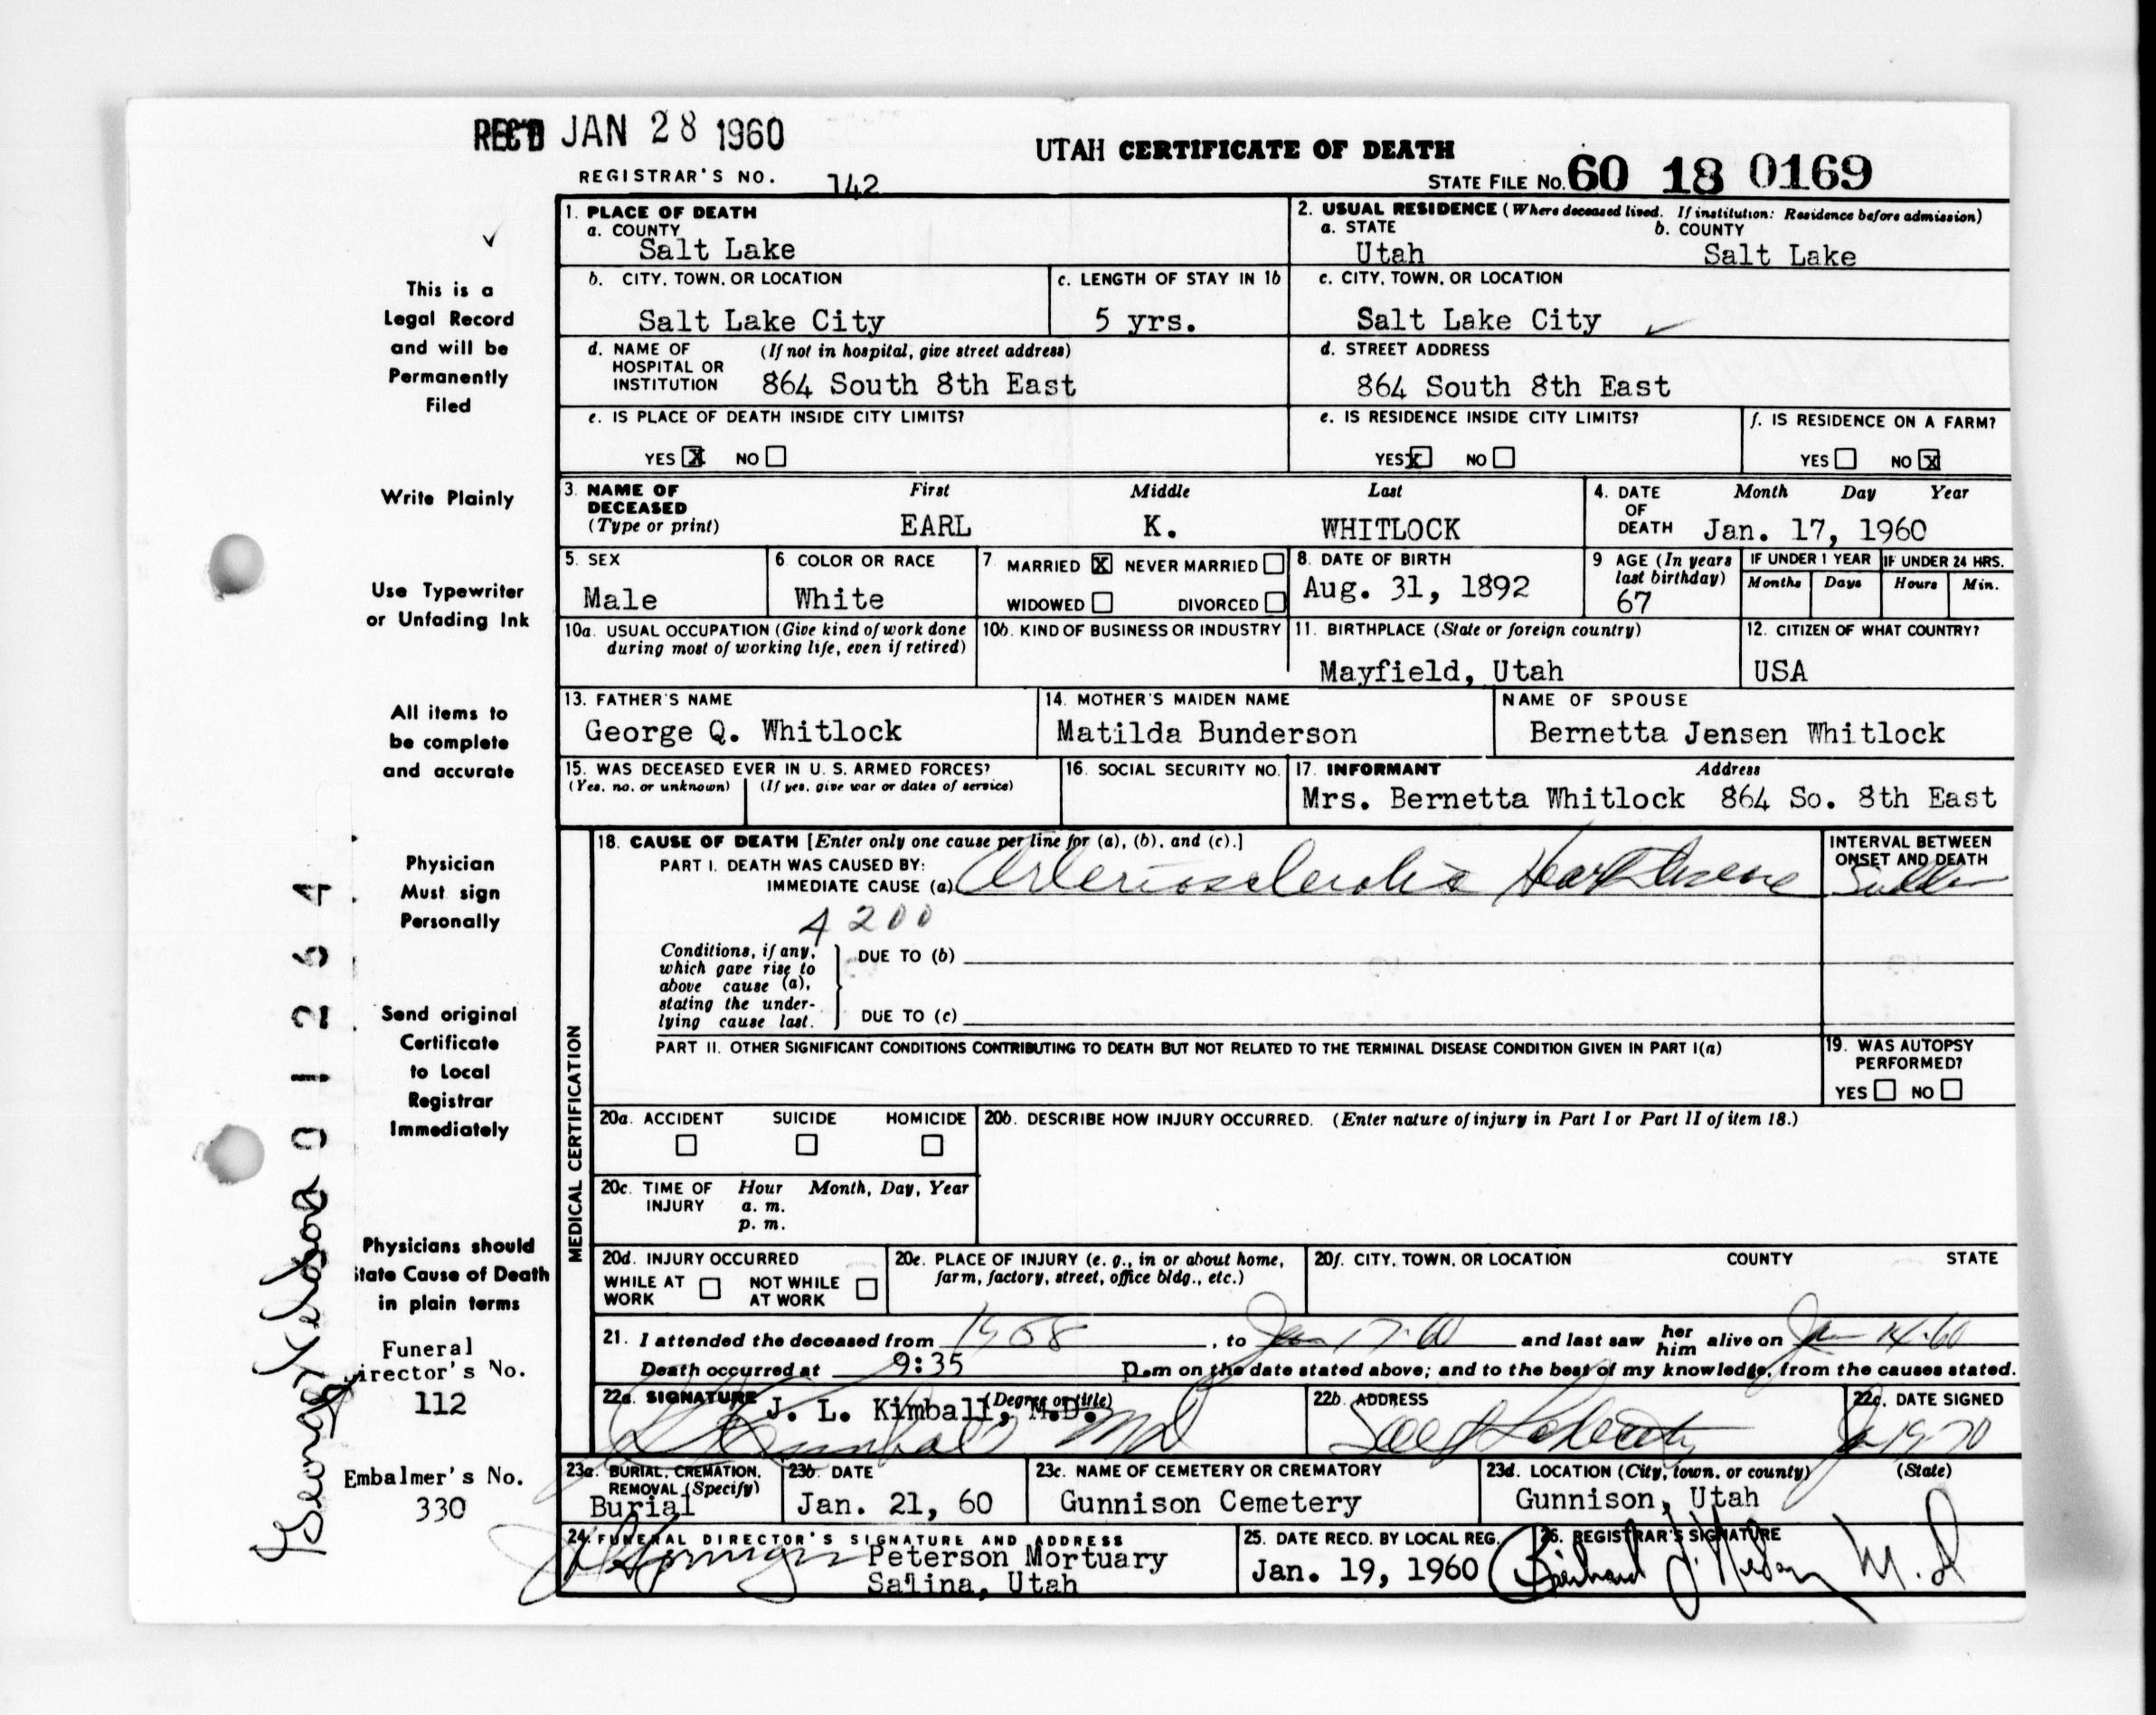 REC'D JAN 28 1960
UTAH CERTIFICATE OF DEATH
REGISTRAR'S NO. 142
STATE FILE NO. 60 18 0169
This is a
Legal Record
and will be
Permanently
Filed
Write Plainly
Use Typewriter
or Unfading Ink
All items to
be complete
and accurate
Physician
Must sign
Personally
Send original
Certificate
to Local
Registrar
Immediately
Physicians should
State Cause of Death
in plain terms
Funeral
Director's No.
112
Embalmer's No.
330
1. PLACE OF DEATH
a. COUNTY
Salt Lake
2. USUAL RESIDENCE (Where deceased lived. If institution: Residence before admission)
a. STATE b. COUNTY
Utah Salt Lake
b. CITY, TOWN, OR LOCATION
Salt Lake City
c. LENGTH OF STAY IN 1b
5 yrs.
c. CITY, TOWN, OR LOCATION
Salt Lake City
d. NAME OF (If not in hospital, give street address)
HOSPITAL OR
INSTITUTION 864 South 8th East
d. STREET ADDRESS
864 South 8th East
e. IS PLACE OF DEATH INSIDE CITY LIMITS?
YES X NO
e. IS RESIDENCE INSIDE CITY LIMITS?
YES X NO
f. IS RESIDENCE ON A FARM?
YES NO X
3. NAME OF First Middle Last
DECEASED
(Type or print) EARL K. WHITLOCK
4. DATE Month Day Year
OF
DEATH Jan. 17, 1960
5. SEX
Male
6. COLOR OR RACE
White
7. MARRIED X NEVER MARRIED
WIDOWED DIVORCED
8. DATE OF BIRTH
Aug. 31, 1892
9. AGE (In years
last birthday)
67
IF UNDER 1 YEAR IF UNDER 24 HRS.
Months Days Hours Min.
10a. USUAL OCCUPATION (Give kind of work done
during most of working life, even if retired)
10b. KIND OF BUSINESS OR INDUSTRY
11. BIRTHPLACE (State or foreign country)
Mayfield, Utah
12. CITIZEN OF WHAT COUNTRY?
USA
13. FATHER'S NAME
George Q. Whitlock
14. MOTHER'S MAIDEN NAME
Matilda Bunderson
NAME OF SPOUSE
Bernetta Jensen Whitlock
15. WAS DECEASED EVER IN U. S. ARMED FORCES?
(Yes, no, or unknown) (If yes, give war or dates of service)
16. SOCIAL SECURITY NO.
17. INFORMANT Address
Mrs. Bernetta Whitlock 864 So. 8th East
MEDICAL CERTIFICATION
18. CAUSE OF DEATH [Enter only one cause per line for (a), (b), and (c).]
PART I. DEATH WAS CAUSED BY:
IMMEDIATE CAUSE (a) Arteriosclerotic Heart Disease
INTERVAL BETWEEN
ONSET AND DEATH
Sudden
4200
Conditions, if any,
which gave rise to
above cause (a),
stating the under-
lying cause last.
DUE TO (b)
DUE TO (c)
PART II. OTHER SIGNIFICANT CONDITIONS CONTRIBUTING TO DEATH BUT NOT RELATED TO THE TERMINAL DISEASE CONDITION GIVEN IN PART I(a)
19. WAS AUTOPSY
PERFORMED?
YES NO
20a. ACCIDENT SUICIDE HOMICIDE
20b. DESCRIBE HOW INJURY OCCURRED. (Enter nature of injury in Part I or Part II of item 18.)
20c. TIME OF Hour Month, Day, Year
INJURY a. m.
p. m.
20d. INJURY OCCURRED
WHILE AT NOT WHILE
WORK AT WORK
20e. PLACE OF INJURY (e. g., in or about home,
farm, factory, street, office bldg., etc.)
20f. CITY, TOWN, OR LOCATION COUNTY STATE
21. I attended the deceased from 1958, to Jan 17-60 and last saw her him alive on Jan 14-60
Death occurred at 9:35 p.m on the date stated above; and to the best of my knowledge, from the causes stated.
22a. SIGNATURE (Degree or title)
J. L. Kimball, M.D.
22b. ADDRESS
Salt Lake City
22c. DATE SIGNED
23a. BURIAL, CREMATION,
REMOVAL (Specify)
Burial
23b. DATE
Jan. 21, 60
23c. NAME OF CEMETERY OR CREMATORY
Gunnison Cemetery
23d. LOCATION (City, town, or county) (State)
Gunnison, Utah
24. FUNERAL DIRECTOR'S SIGNATURE AND ADDRESS
Peterson Mortuary
Salina, Utah
25. DATE RECD. BY LOCAL REG.
Jan. 19, 1960
26. REGISTRAR'S SIGNATURE
M.D